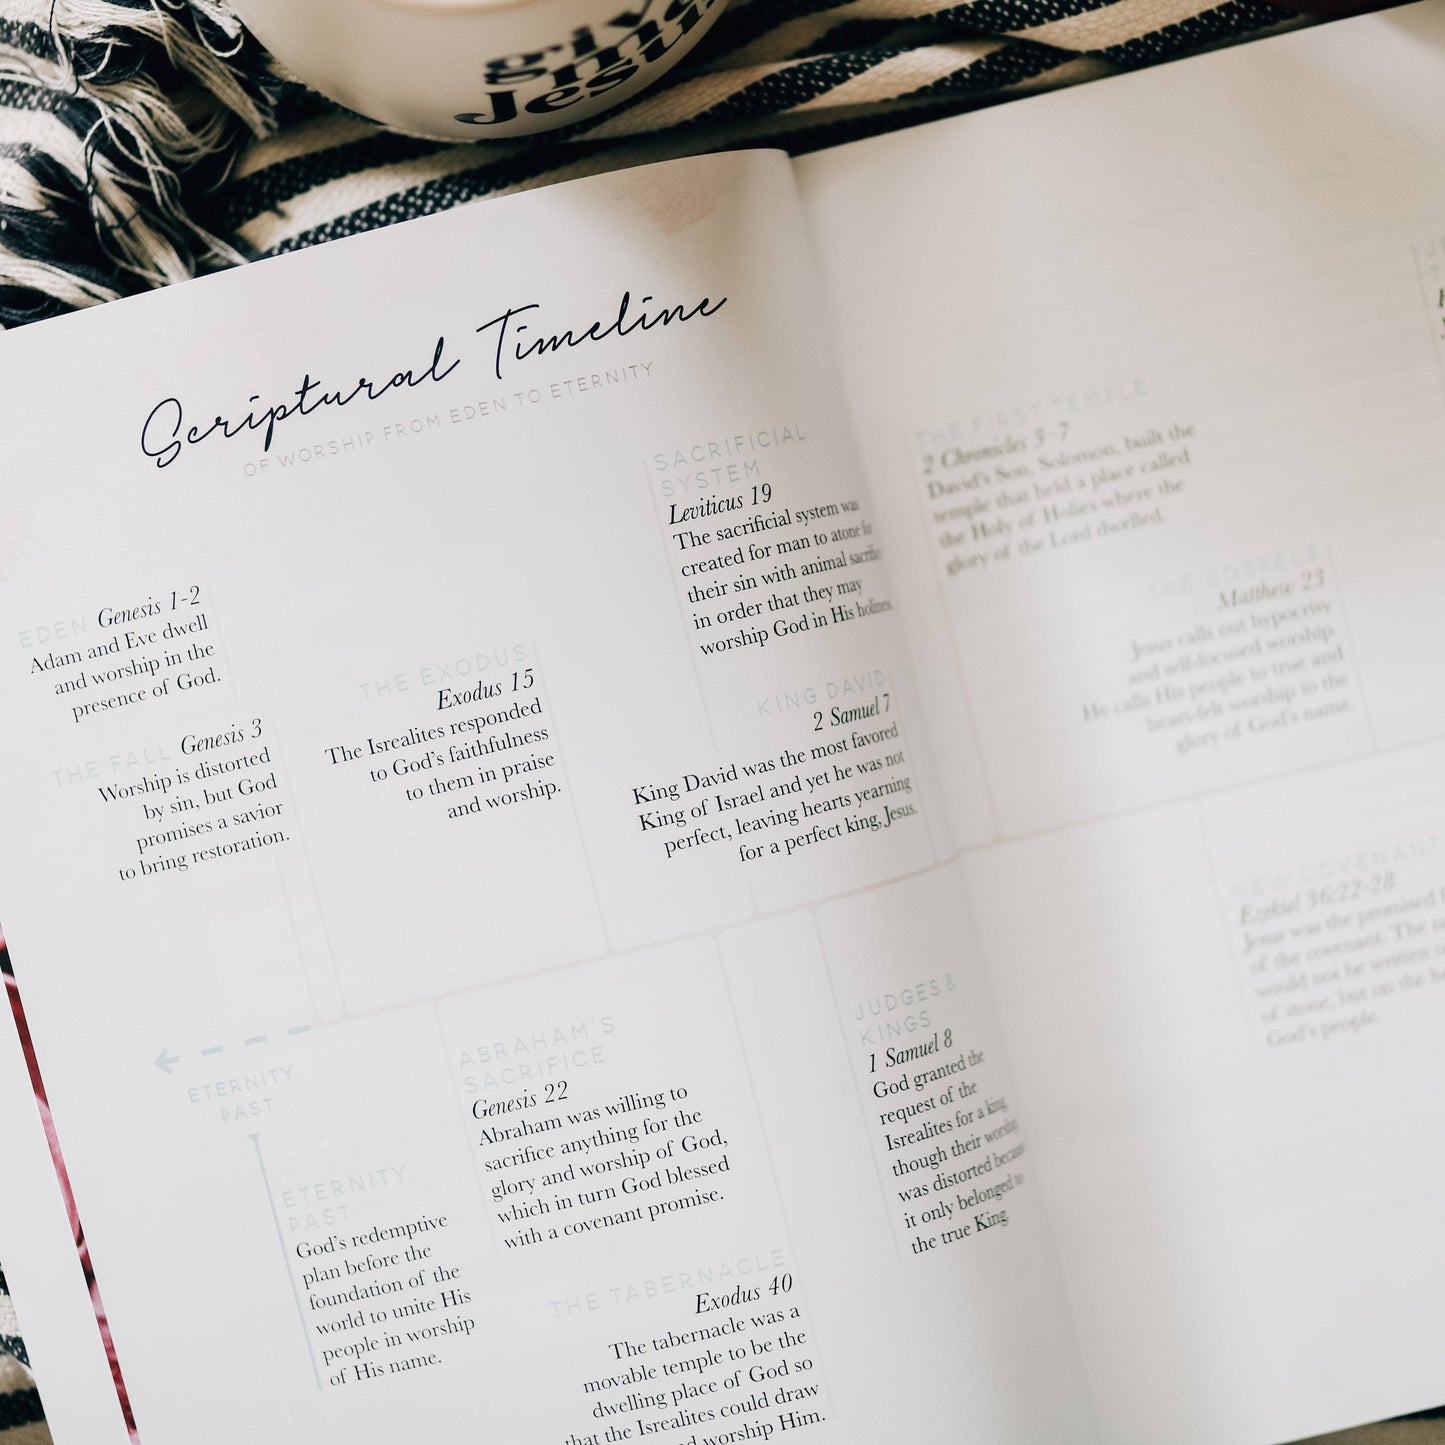 give
me
Jesus
Scriptural Timeline
OF WORSHIP FROM EDEN TO ETERNITY
EDEN Genesis 1-2
Adam and Eve dwell
and worship in the
presence of God.
THE FALL Genesis 3
Worship is distorted
by sin, but God
promises a savior
to bring restoration.
THE EXODUS
Exodus 15
The Isrealites responded
to God's faithfulness
to them in praise
and worship.
SACRIFICIAL
SYSTEM
Leviticus 19
The sacrificial system was
created for man to atone for
their sin with animal sacrifice
in order that they may
worship God in His holiness.
KING DAVID
2 Samuel 7
King David was the most favored
King of Israel and yet he was not
perfect, leaving hearts yearning
for a perfect king, Jesus.
ETERNITY
PAST
ETERNITY
PAST
God's redemptive
plan before the
foundation of the
world to unite His
people in worship
of His name.
ABRAHAM'S
SACRIFICE
Genesis 22
Abraham was willing to
sacrifice anything for the
glory and worship of God,
which in turn God blessed
with a covenant promise.
THE TABERNACLE
Exodus 40
The tabernacle was a
movable temple to be the
dwelling place of God so
that the Isrealites could draw
worship Him.
JUDGES &
KINGS
1 Samuel 8
God granted the
request of the
Isrealites for a king,
though their worship
was distorted because
it only belonged to
the true King.
THE FIRST TEMPLE
2 Chronicles 3-7
David's Son, Solomon, built the
temple that held a place called
the Holy of Holies where the
glory of the Lord dwelled.
THE GOSPELS
Matthew 23
Jesus calls out hypocrisy
and self-focused worship.
He calls His people to true and
heart-felt worship to the
glory of God's name.
NEW COVENANT
Ezekiel 36:22-28
Jesus was the promised
of the covenant. The
would not be written
of stone, but on the
God's people.